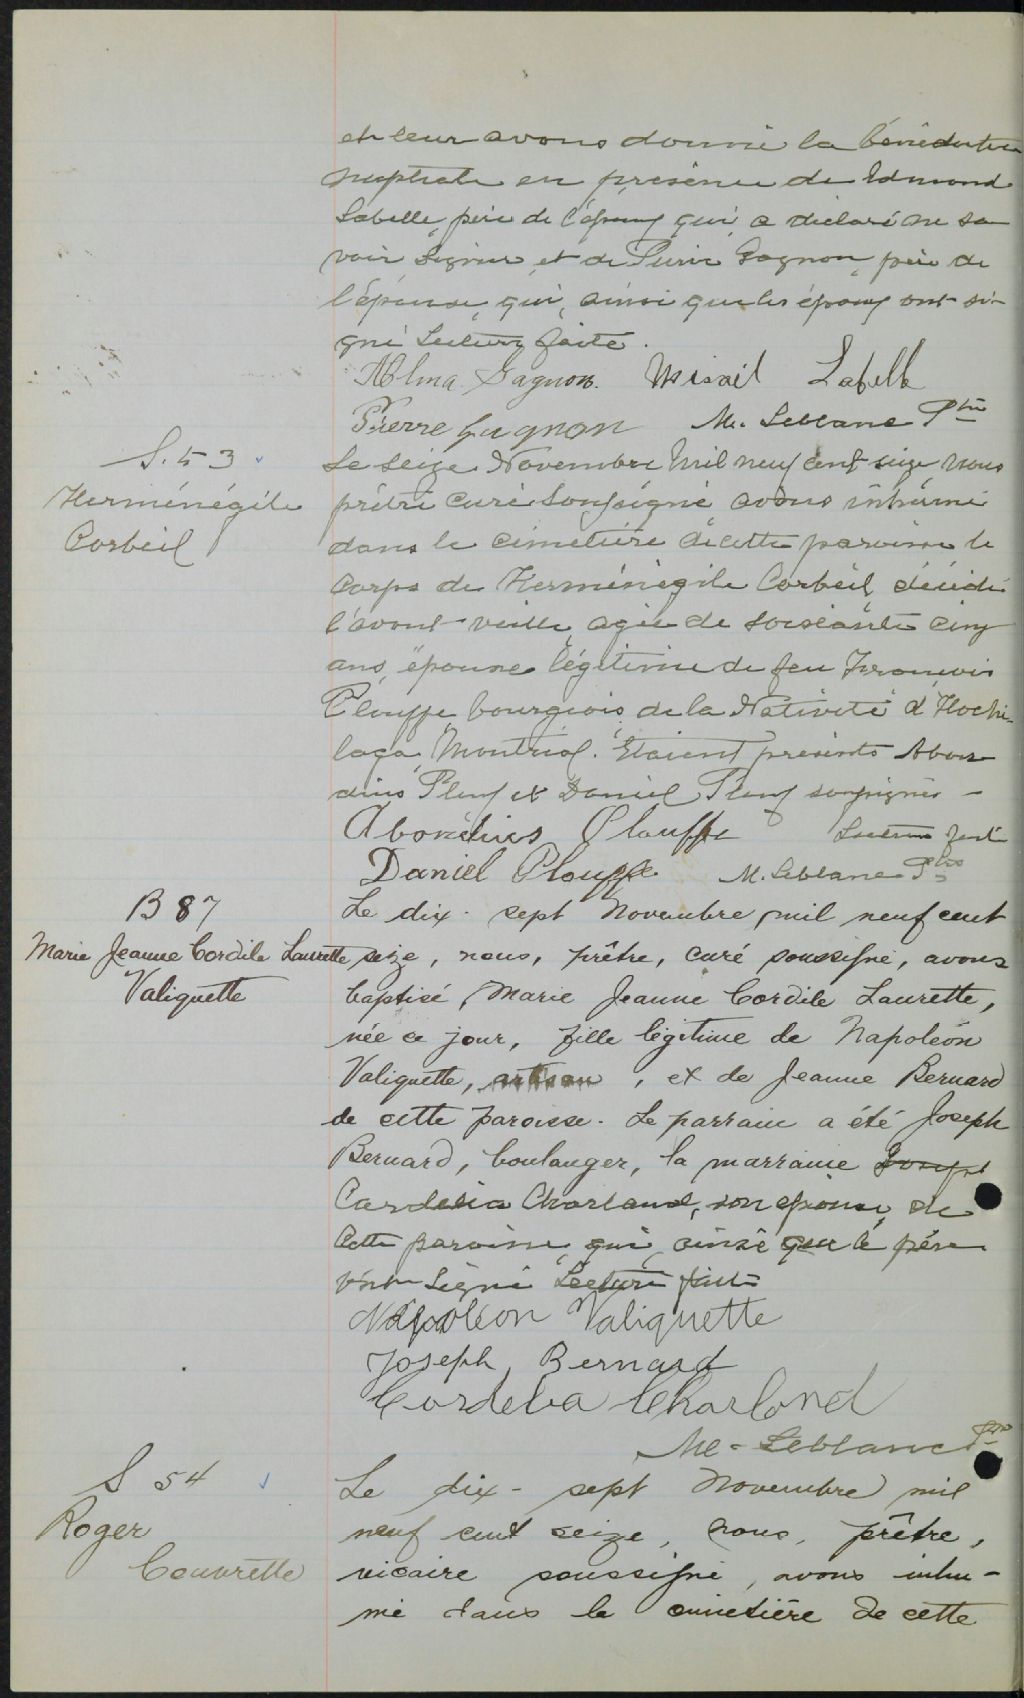 et leur avons donné la bénédiction
nuptiale en présence de Edmond
Labelle, père de l'époux qui a déclaré ne sa
voir signer et de Pierre Gagnon père de
l'épouse, qui, ainsi que les époux ont si-
gné Lecture faite.
Alma Gagnon. Misaël Labelle
Pierre Gagnon M. Leblanc Ptre
S. 53
Herménégile
Corbeil
Le seize Novembre mil neuf cent seize nous
prêtre curé soussigné avons inhumé
dans le cimetière de cette paroisse le
corps de Herménégile Corbeil, décédé
l'avant-veille, agée de soixante cinq
ans, épouse légitime de feu François
Plouffe, bourgeois de la Nativité d'Hoche-
laga, Montréal. Etaient présents Abon
dius Plouf et Daniel Plouf soussignés -
Abondius Plouffe Lecture faite
Daniel Plouffe. M. Leblanc Ptre
B 87
Marie Jeanne Cordile Laurette
Valiquette
Le dix-sept Novembre, mil neuf cent
seize, nous, prêtre, curé soussigné, avons
baptisé, Marie Jeanne Cordile Laurette,
née ce jour, fille légitime de Napoléon
Valiquette, artisan, et de Jeanne Bernard
de cette paroisse. Le parrain a été Joseph
Bernard, boulanger, la marraine
Cordelia Charland, son épouse, de
cette paroisse qui ainsi que le père
ont signé Lecture faite
Napoléon Valiquette
Joseph Bernard
Cordelia Charland
M. Leblanc Ptre
S 54
Roger
Couvrette
Le dix-sept Novembre mil
neuf cent seize, nous, prêtre,
vicaire soussigné, avons inhu-
mé dans le cimetière de cette